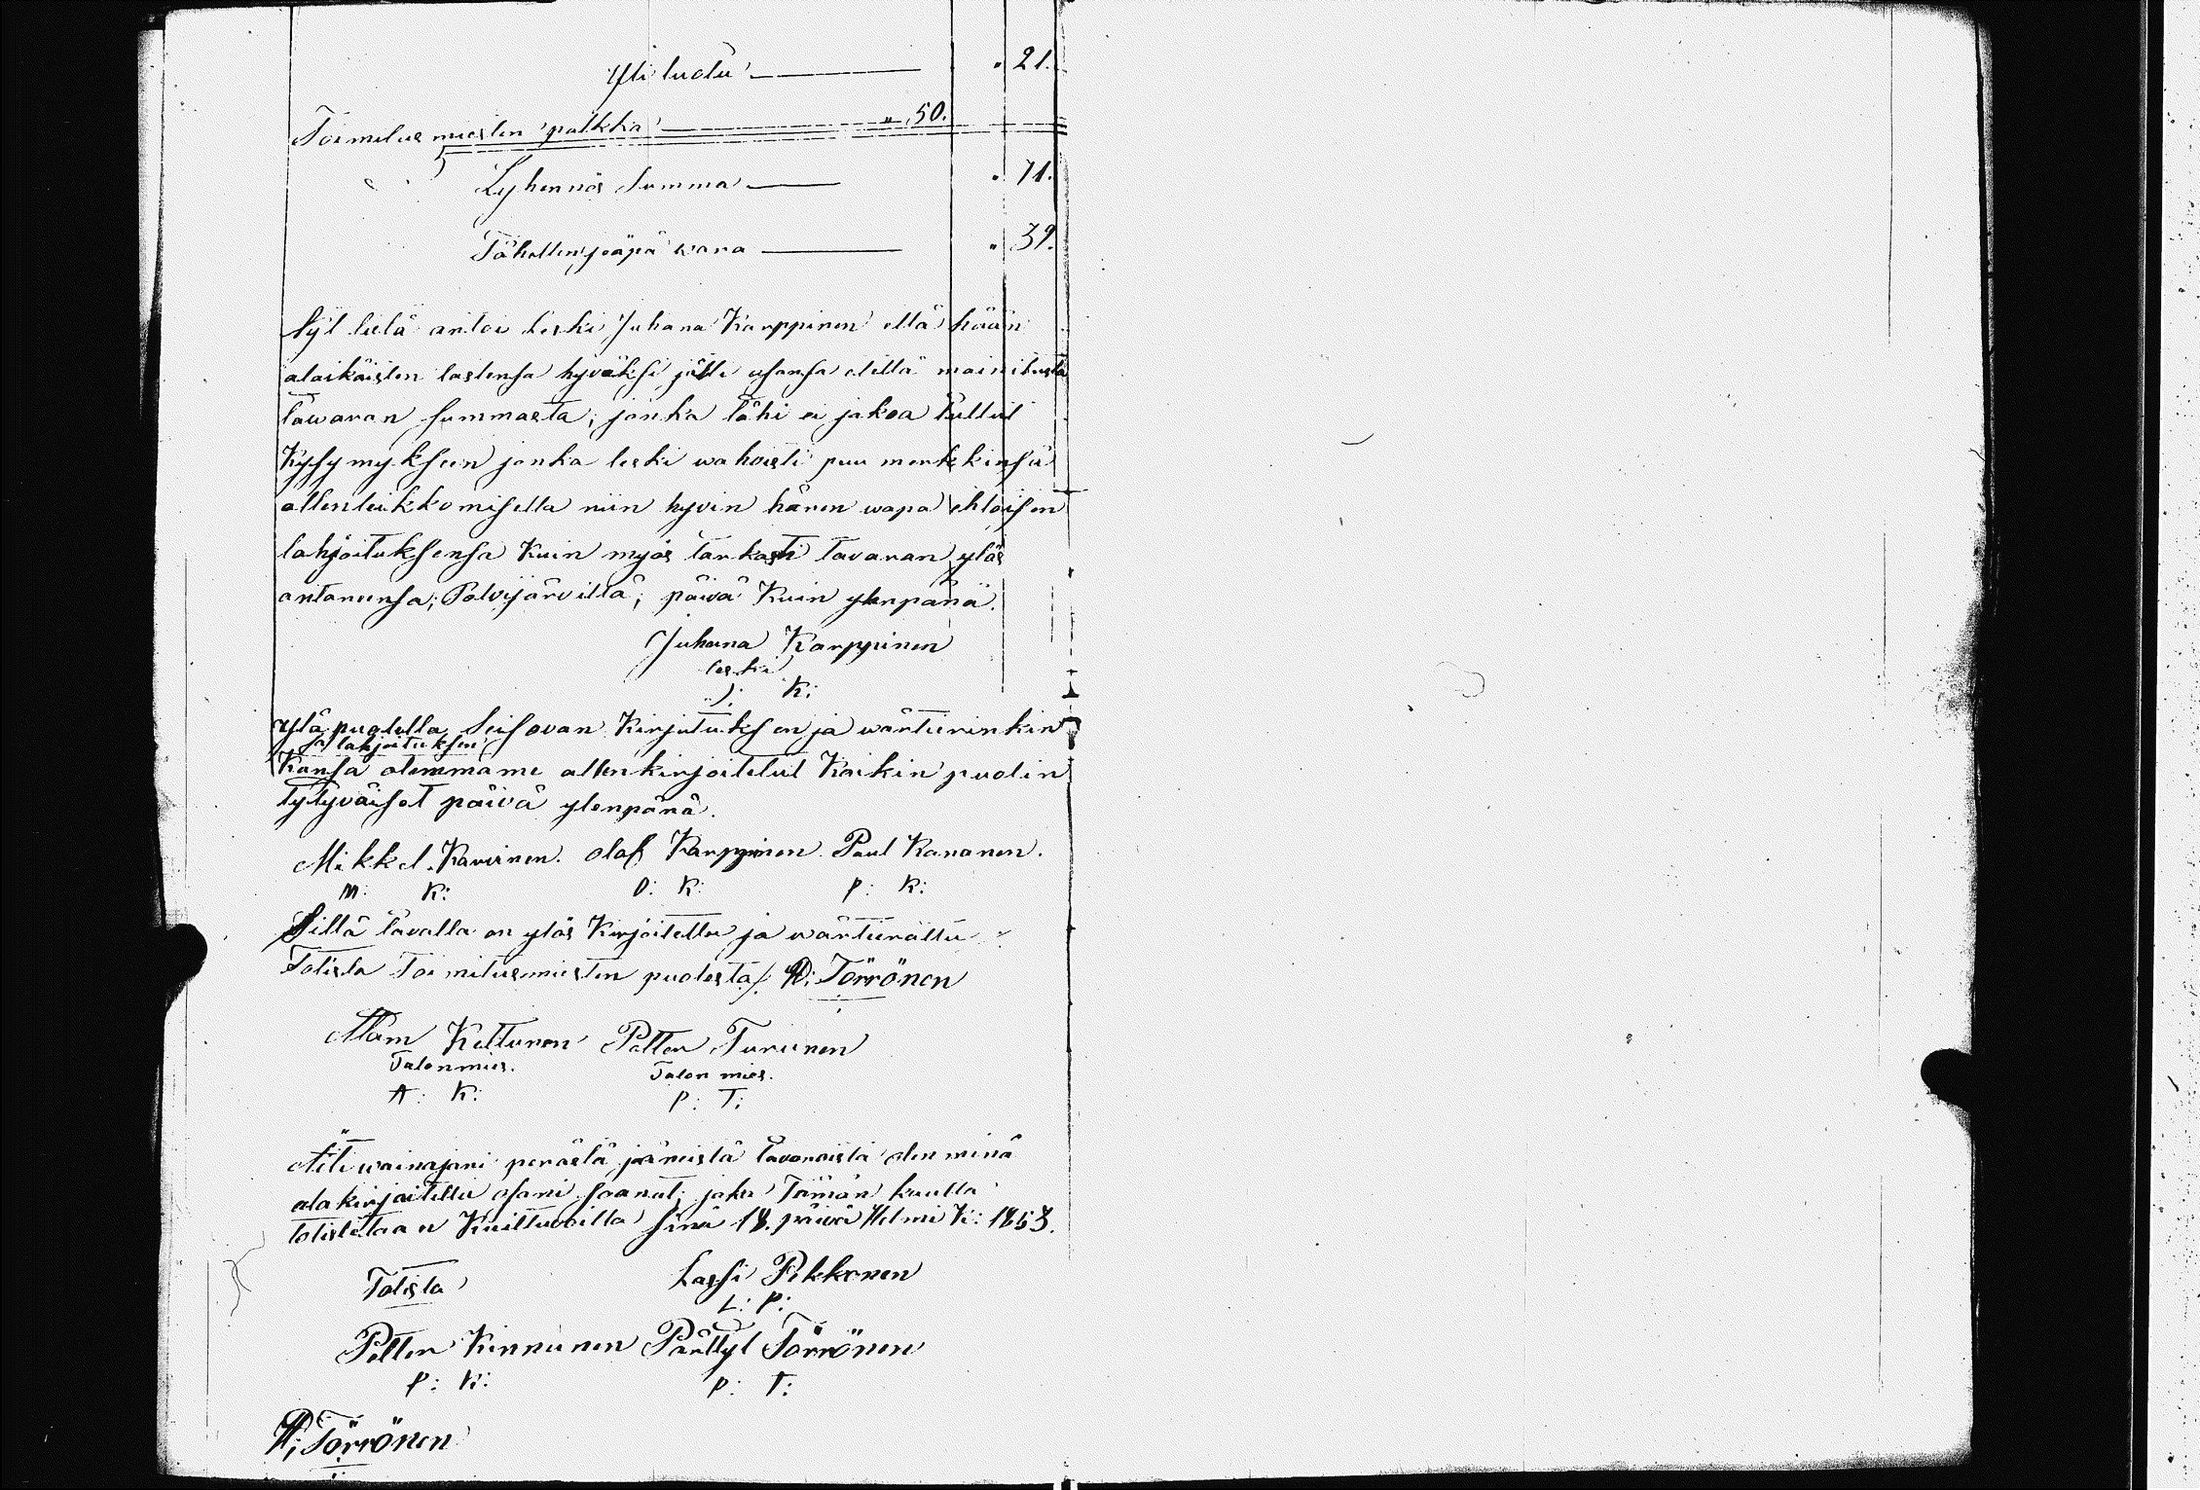 Yli luolu " 21.
Toimitus miesten palkka " 50.
Lyhennös Summa " 71.
Tähellenjeäpä wara " 39.
Nyt lielä antoi leski Juhana Karppinen että hään
alaikäisten lastensa hyväksi jätti osansa edellä mainitusta
tawaran summasta, jonka tähi ei jakoa tullut
Kysymykseen jonka leski wahvisti puu merkkinsä
allenleikkomisella niin hyvin hänen wapa ehtoisen
lahjoituksensa Kuin myös tarkasti tavaran ylös
antaneensa; Polvijärvillä, päivä Kuin ylenpänä.
Juhana Karppinen
leski
J: K:
Ylä puolella Seisovan Kirjutuksen ja wärtierinkin
ja lahjoituksen
Kansa olemmame allenkirjoitetut Kaikin puolin
tytyväiset päivä ylenpänä.
Mikkel Karvinen. Olof Karppinen. Paul Kananen.
M: K: O: K: P: K:
Sillä tavalla on ylös Kirjoitettu ja wärtierättu
Totista Toimitusmiesten puolesta/: P: Törrönen
Atam Kettunen Petter Turunen
Talonmies. Talon mies.
A: K: P: T:
Äiti wainajani perästä jäneistä tavaraista olen minä
alakirjoitettu osani saanut, joka Tämän kautta
totistetaan Kuittuvilla sinä 18. päivä Helmi K: 1853.
Totista Lassi Pekkonen
L: P:
Petter Kinnunen Pärttyl Törrönen
P: K: P: T:
P; Törrönen